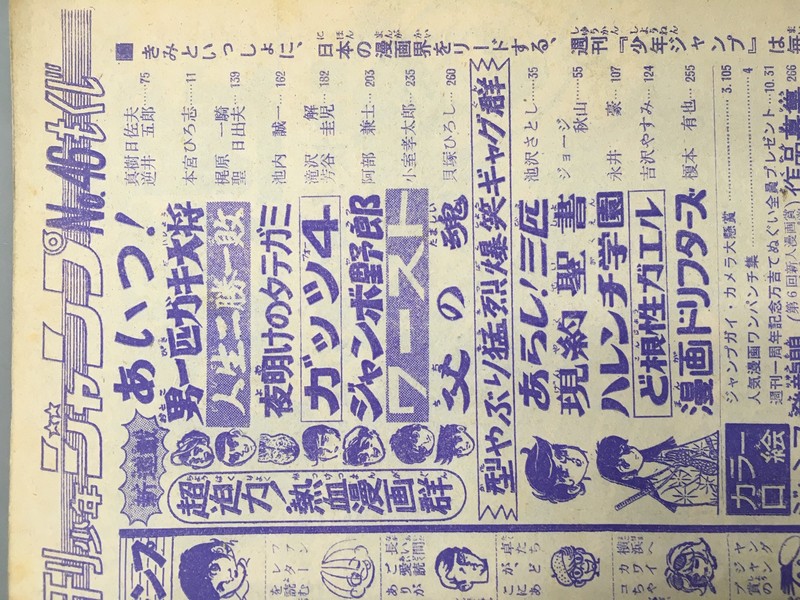 週刊少年ジャンプ No.46 もくじ
きみといっしょに、日本の漫画界をリードする、週刊『少年ジャンプ』は毎
新連載
超迫力熱血漫画群
あいつ! 真樹日佐夫 逆井五郎…75
男一匹ガキ大将 本宮ひろ志…11
人生二勝一敗 梶原一騎 聖日出夫…139
夜明けのタテガミ 池内誠一…162
ガッツ4 滝沢解 芳谷圭児…182
ジャンボ野郎 阿部兼士…203
ワースト 小室孝太郎…235
父の魂 貝塚ひろし…260
型やぶり猛烈爆笑ギャグ群
あらし!三匹 池沢さとし…35
現約聖書 ジョージ秋山…55
ハレンチ学園 永井豪…107
ど根性ガエル 吉沢やすみ…124
漫画ドリフターズ 榎本有也…255
カラー口絵
ジャンプガイ・カメラ大懸賞…3.105
人気漫画ワンパンチ集…4
週刊一周年記念万吉てぬぐい全員プレゼント…10.31
(第6回新人漫画賞)作品募集 266